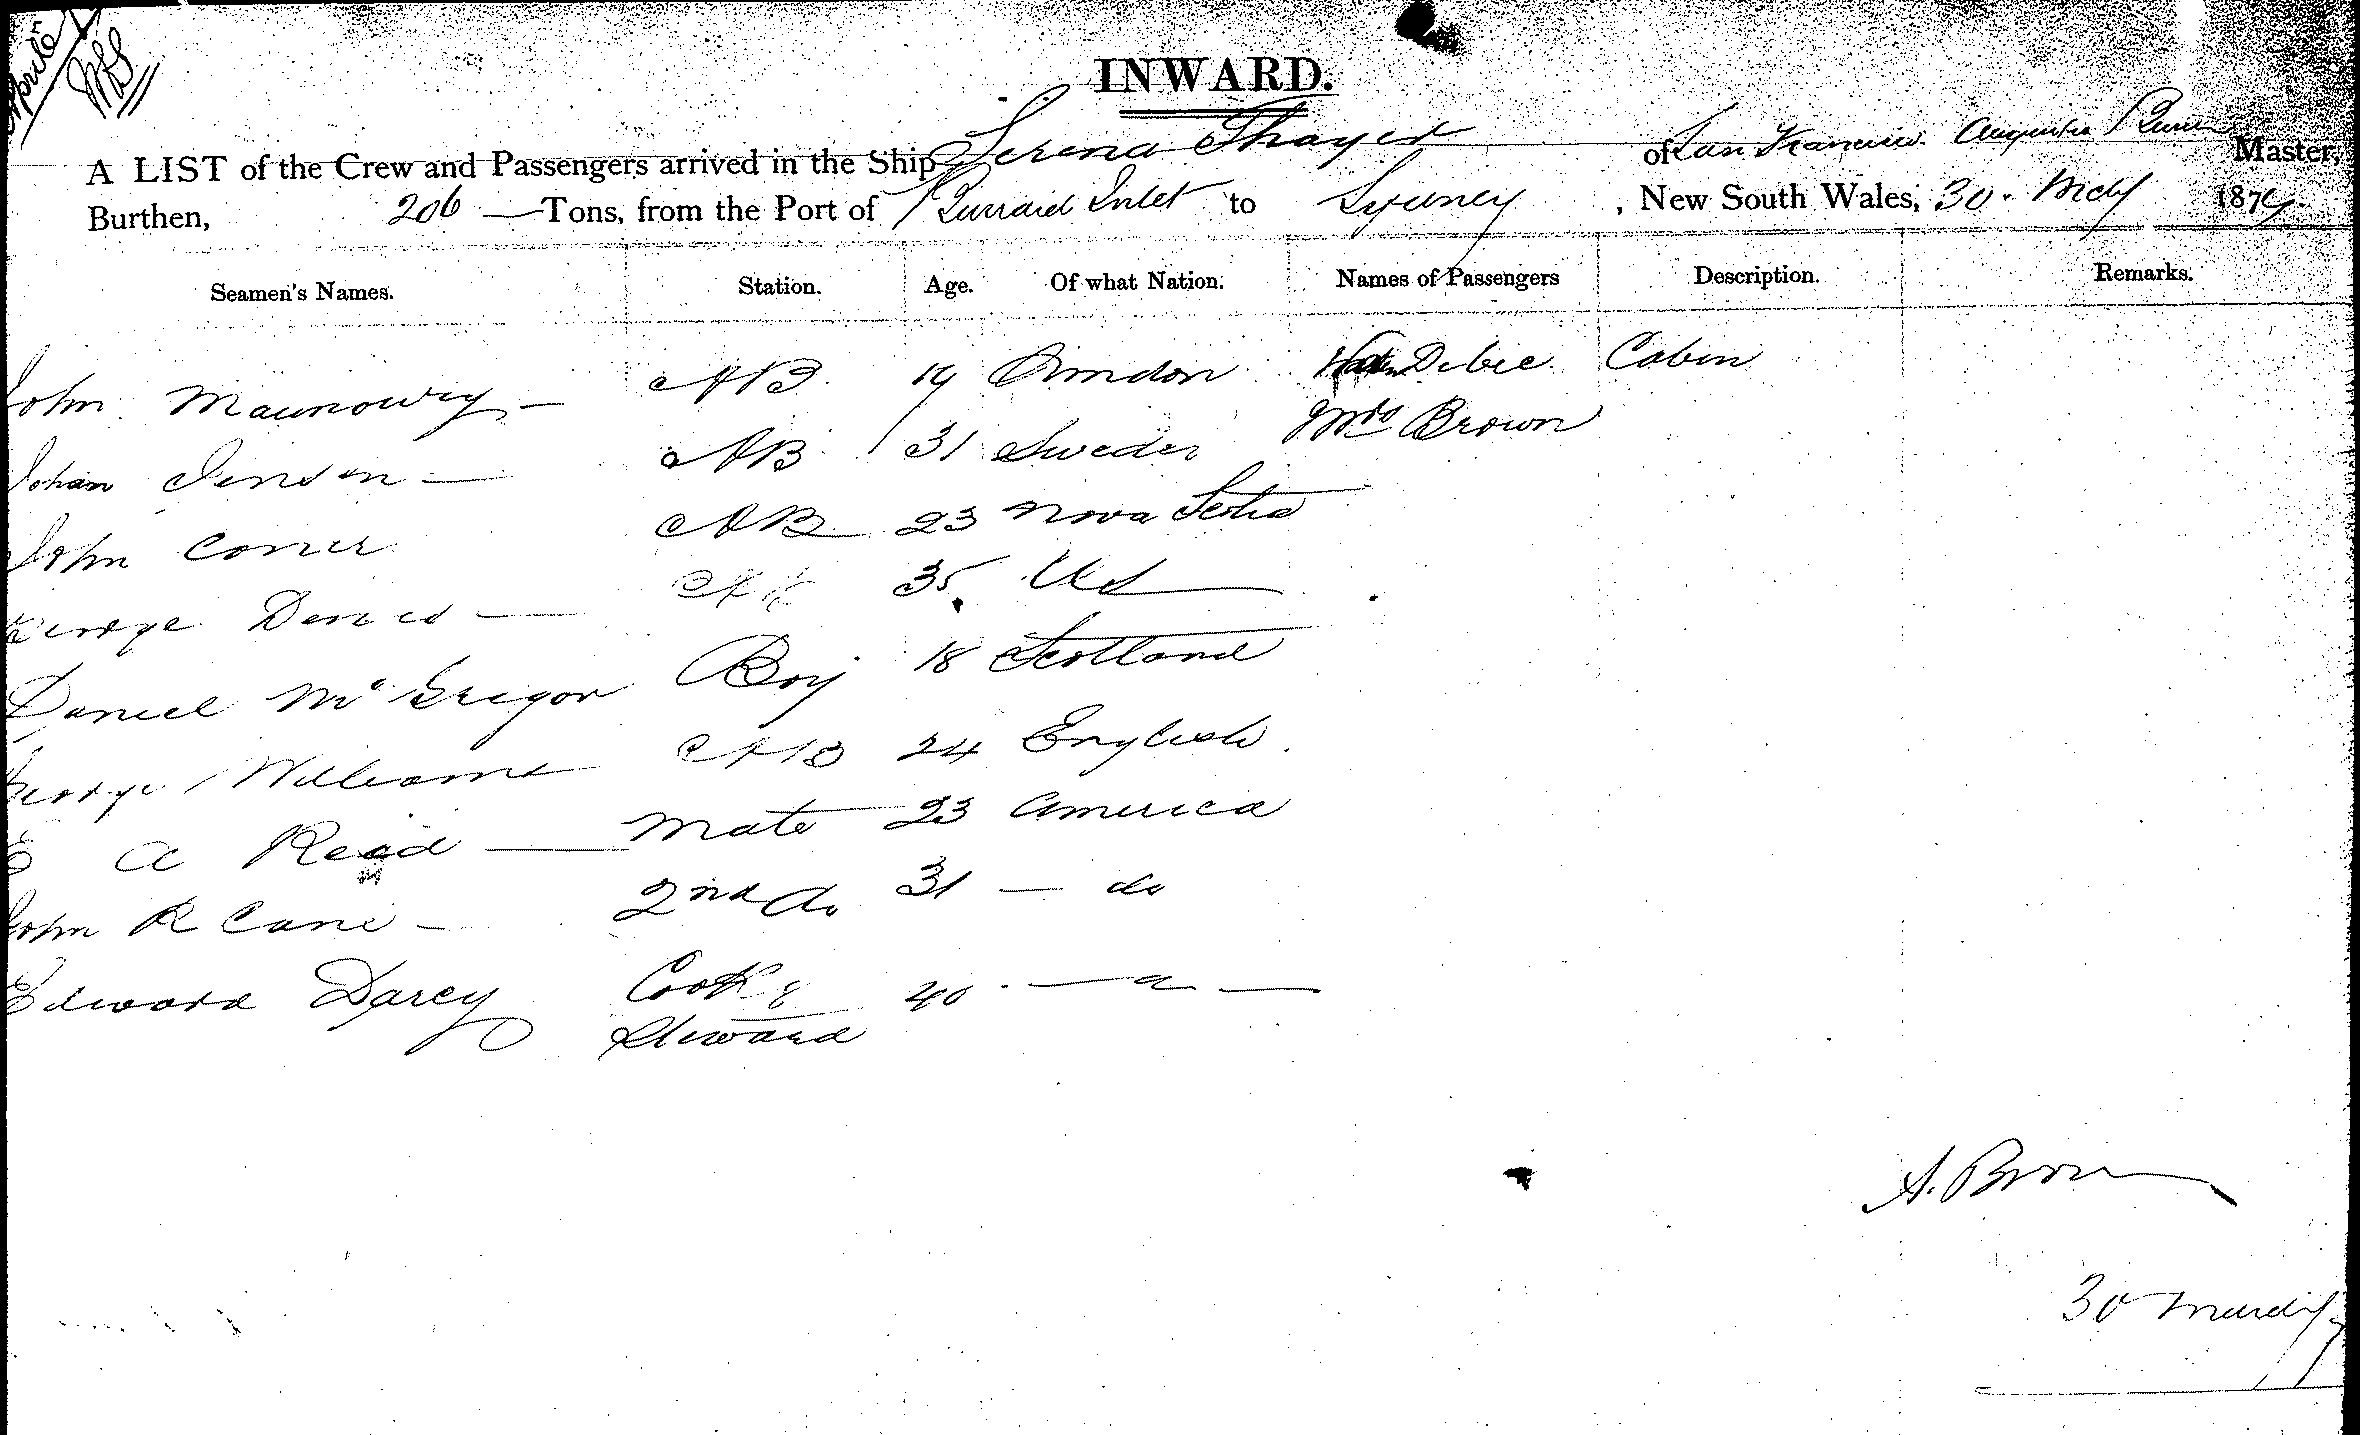 INWARD.
A LIST of the Crew and Passengers arrived in the Ship Serena Thayer of San Francisco Master,
Burthen, 206 Tons, from the Port of Burrard Inlet to Sydney, New South Wales, 30 187
Seamen's Names. Station. Age. Of what Nation. Names of Passengers Description. Remarks.
John AB 19 Cabin
Johan Jenson AB 31 Sweden Mrs Brown
John AB 23 Nova Scotia
George 35 US
Daniel McGregor Boy 18 Scotland
George Williams AB 24 English
E A Read Mate 23 America
John R Cane 2nd do 31 do
Edward Darcy Cook & 40
Steward
A. Brown
30